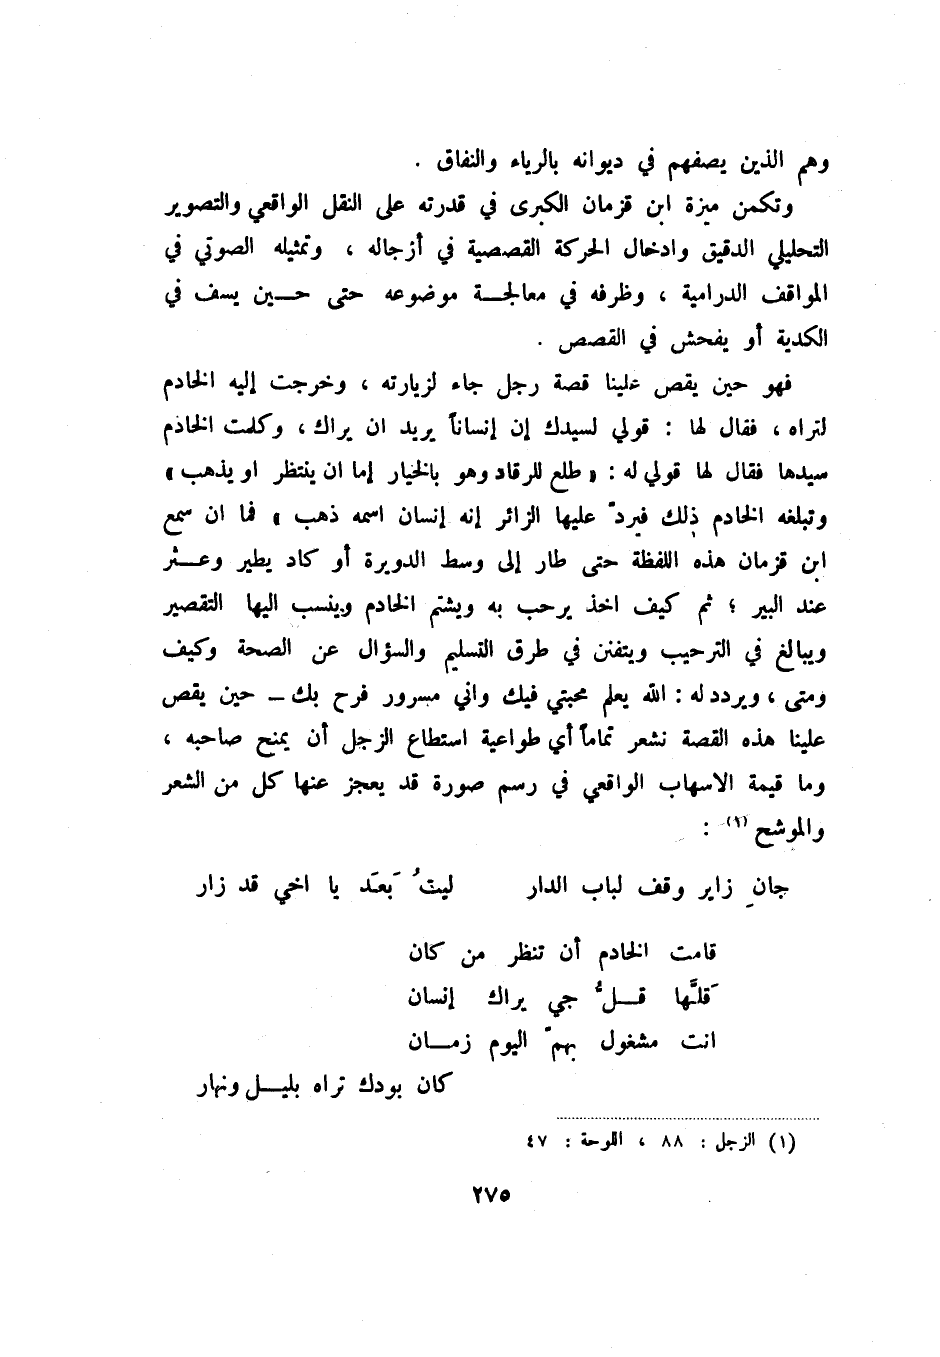 وهم الذين يصفهم في ديوانه بالرياء والنفاق .
وتكمن ميزة ابن قزمان الكبرى في قدرته على النقل الواقعي والتصوير
التحليلي الدقيق وادخال الحركة القصصية في أزجاله ، وتمثيله الصوتي في
المواقف الدرامية ، وظرفه في معالجة موضوعه حتى حين يسف في
الكدية أو يفحش في القصص .
فهو حين يقص علينا قصة رجل جاء لزيارته ، وخرجت إليه الخادم
لتراه ، فقال لها : قولي لسيدك إن إنساناً يريد ان يراك ، وكلمت الخادم
سيدها فقال لها قولي له : « طلع للرقاد وهو بالخيار إما ان ينتظر او يذهب »
وتبلغه الخادم ذلك فيردّ عليها الزائر إنه إنسان اسمه ذهب » فما ان سمع
ابن قزمان هذه اللفظة حتى طار إلى وسط الدويرة أو كاد يطير وعثر
عند البير ؛ ثم كيف اخذ يرحب به ويشتم الخادم وينسب اليها التقصير
ويبالغ في الترحيب ويتفنن في طرق التسليم والسؤال عن الصحة وكيف
ومتى ، ويردد له : الله يعلم محبتي فيك واني مسرور فرح بك – حين يقص
علينا هذه القصة نشعر تماماً أي طواعية استطاع الزجل أن يمنح صاحبه ،
وما قيمة الاسهاب الواقعي في رسم صورة قد يعجز عنها كل من الشعر
والموشح (١) :
جانِ زاير وقف لباب الدار ليتُ بَعَد يا اخي قد زار
قامت الخادم أن تنظر من كان
قَلَّها قلُ جي يراك إنسان
انت مشغول بهمّ اليوم زمان
كان بودك تراه بليل ونهار
(١) الزجل : ٨٨ ، اللوحة : ٤٧
٢٧٥